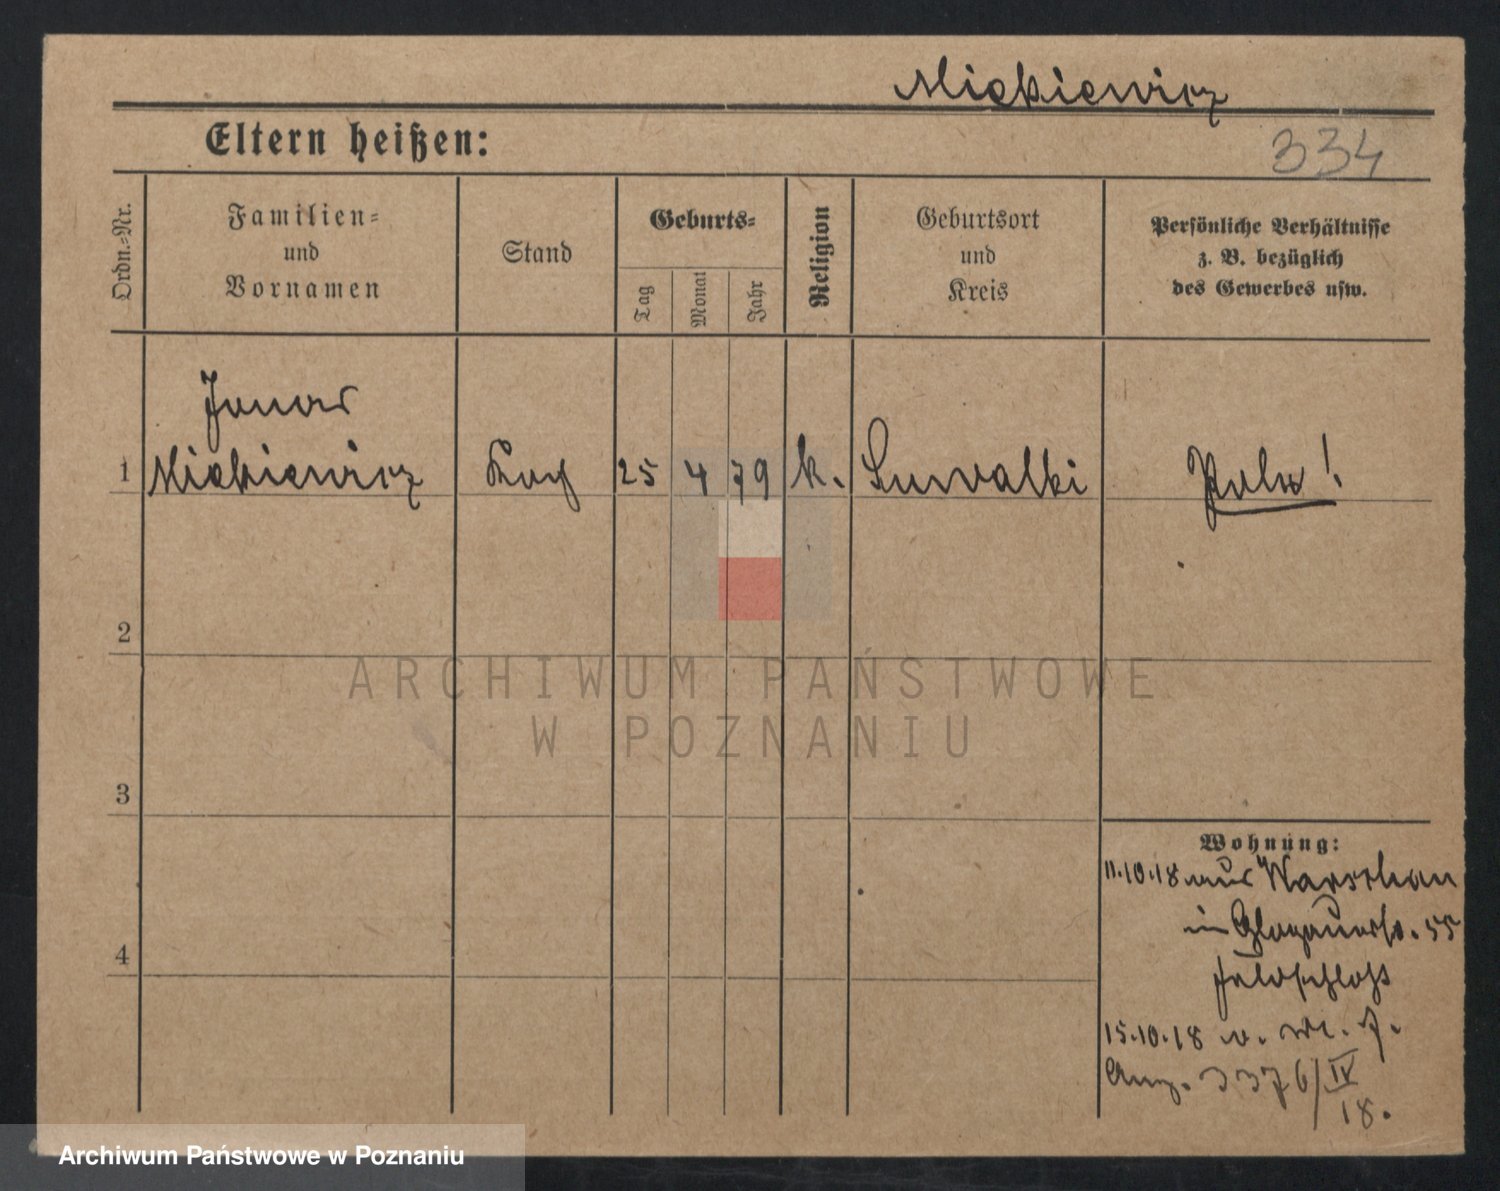 Mickiewicz
Eltern heißen:
334
Ordn.-Nr.
Familien-
und
Vornamen
Stand
Geburts-
Tag
Monat
Jahr
Religion
Geburtsort
und
Kreis
Persönliche Verhältnisse
z. B. bezüglich
des Gewerbes usw.
1
Mickiewicz
25
4
79
k.
Suwalki
Pole!
2
3
4
Wohnung:
11.10.18 aus Warschau
in Glogauerstr. 55
Feldschloß
15.10.18
Anz. 3376/IV
18.
ARCHIWUM PAŃSTWOWE
W POZNANIU
Archiwum Państwowe w Poznaniu